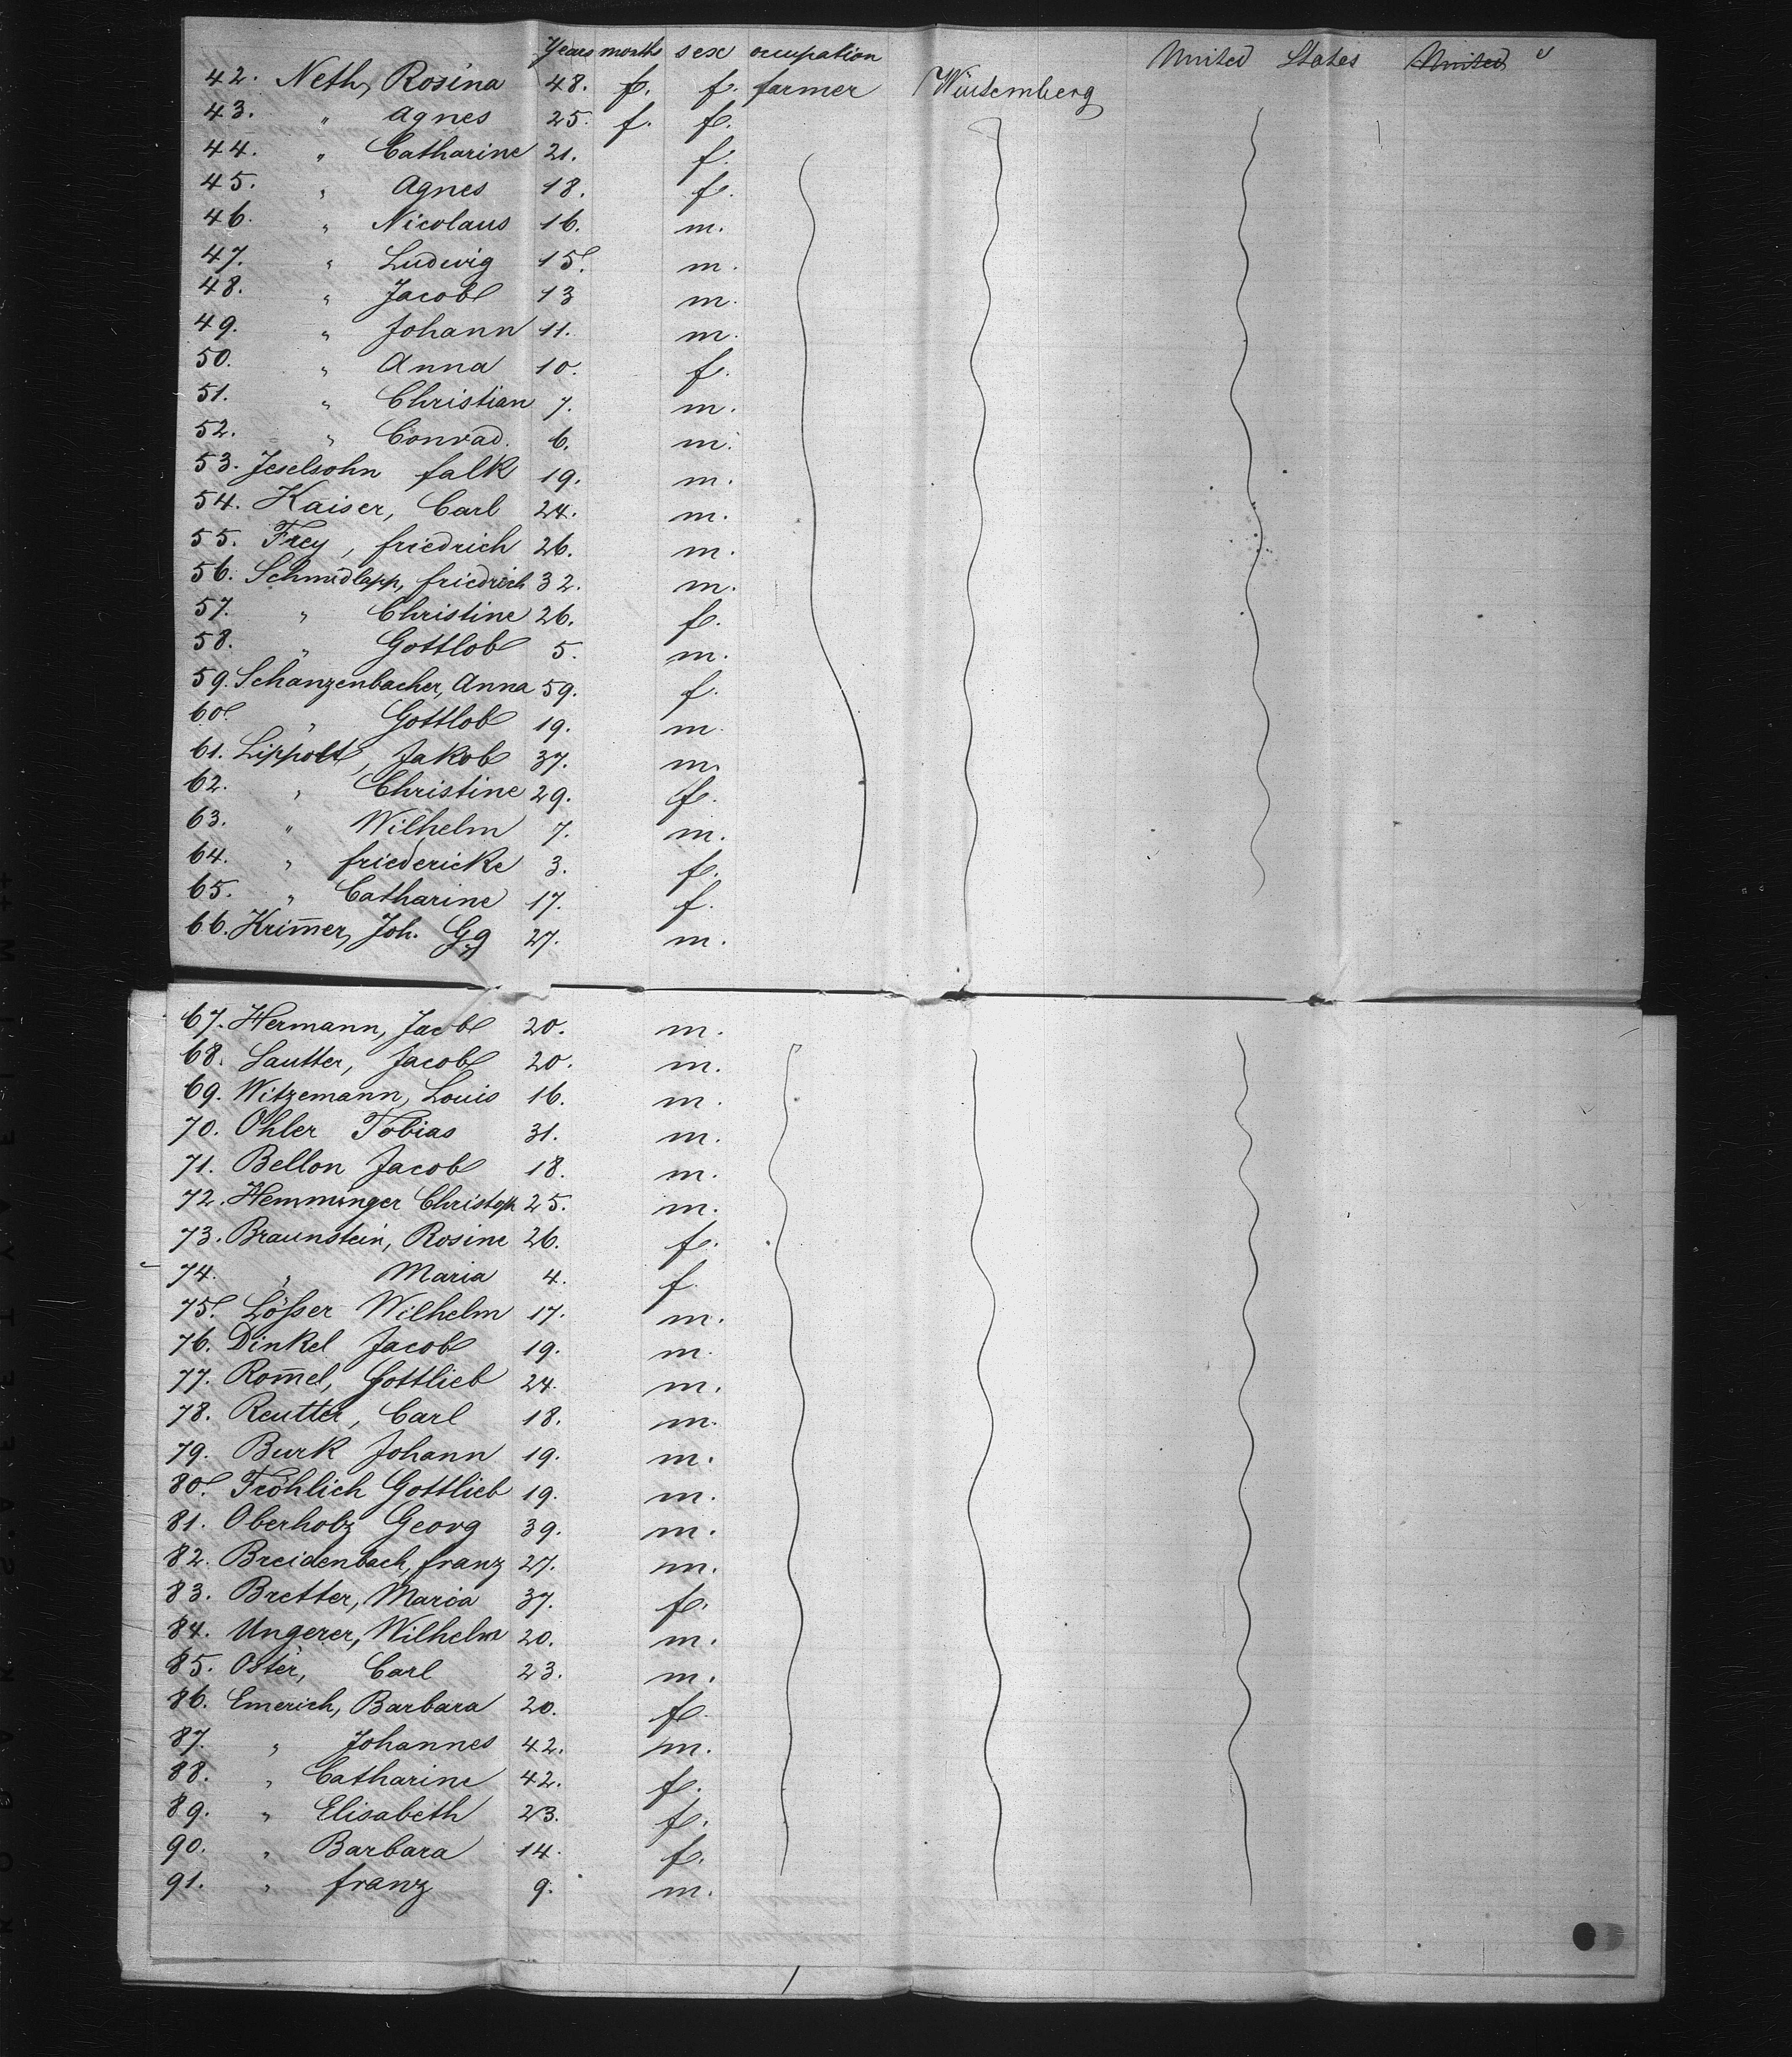 Years months sex occupation United States United
42. Neth, Rosina 48. f. f. farmer Würtemberg
43. " Agnes 25. f. f.
44. " Catharine 21. f.
45. " Agnes 18. f.
46. " Nicolaus 16. m.
47. " Ludwig 15. m.
48. " Jacob 13 m.
49. " Johann 11. m.
50. " Anna 10. f.
51. " Christian 7. m.
52. " Conrad. 6. m.
53. Jeselsohn falk 19. m.
54. Kaiser, Carl 24. m.
55. Frey, friedrich 26. m.
56. Schmidlapp, friedrich 32. m.
57. " Christine 26. f.
58. " Gottlob 5. m.
59. Schanzenbacher, Anna 59. f.
60. " Gottlob 19. m.
61. Lippolt, Jakob 37. m.
62. " Christine 29. f.
63. " Wilhelm 7. m.
64. " friedericke 3. f.
65. " Catharine 17. f.
66. Krim̄er, Joh. Gg 27. m.
67. Hermann, Jacob 20. m.
68. Sautter, Jacob 20. m.
69. Witzemann, Louis 16. m.
70. Ohler Tobias 31. m.
71. Bellon Jacob 18. m.
72. Hemminger Christoph 25. m.
73. Braunstein, Rosine 26. f.
74. " Maria 4. f.
75. Lößer Wilhelm 17. m.
76. Dinkel Jacob 19. m.
77. Rom̄el, Gottlieb 24. m.
78. Reutter, Carl 18. m.
79. Burk Johann 19. m.
80. Fröhlich Gottlieb 19. m.
81. Oberholz Georg 39. m.
82. Breidenbach, franz 27. m.
83. Bretter, Maria 37. f.
84. Ungerer, Wilhelm 20. m.
85. Oster, Carl 23. m.
86. Emerich, Barbara 20. f.
87. " Johannes 42. m.
88. " Catharine 42. f.
89. " Elisabeth 23. f.
90. " Barbara 14. f.
91. " franz 9. m.